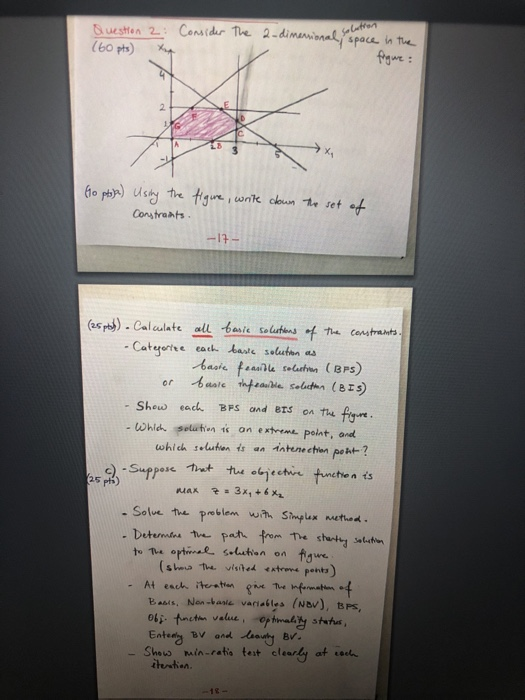 Question 2: Consider the 2-dimensional solution space in the
(60 pts) figure:
X2
4
2
F E
1 G D
C
-1 A 2 B 3 5 X1
-1
(10 pts) a) Using the figure, write down the set of
Constraints.
-17-
(25 pts) b) - Calculate all basic solutions of the constraints.
- Categorize each basic solution as
basic feasible solution (BFS)
or basic infeasible solution (BIS)
- Show each BFS and BIS on the figure.
- Which solution is an extreme point, and
which solution is an intersection point?
c) - Suppose that the objective function is
(25 pts)
max z = 3x1 + 6x2
- Solve the problem with Simplex method.
- Determine the path from the starting solution
to the optimal solution on figure
(show the visited extreme points)
- At each iteration give the information of
Basis, Non-basic variables (NBV), BFS,
Obj. function value, optimality status,
Entering BV and leaving BV.
- Show min-ratio test clearly at each
iteration.
-18-